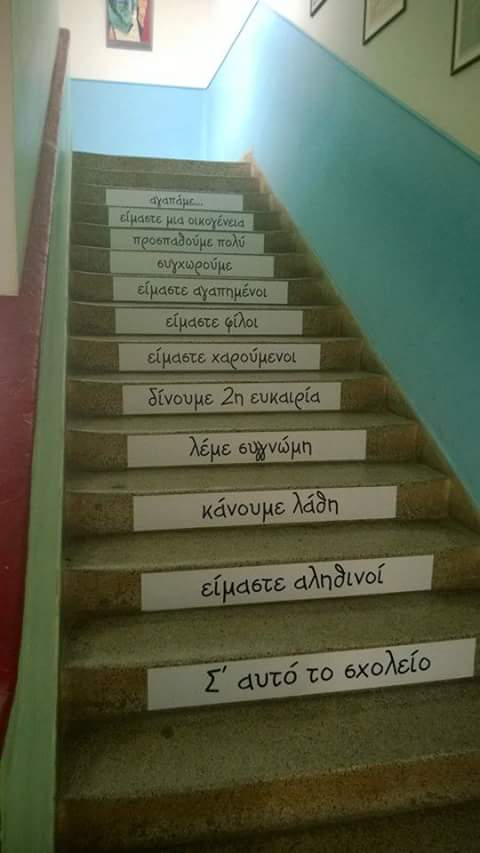 αγαπάμε...
είμαστε μια οικογένεια
προσπαθούμε πολύ
συγχωρούμε
είμαστε αγαπημένοι
είμαστε φίλοι
είμαστε χαρούμενοι
δίνουμε 2η ευκαιρία
λέμε συγγνώμη
κάνουμε λάθη
είμαστε αληθινοί
Σ' αυτό το σχολείο